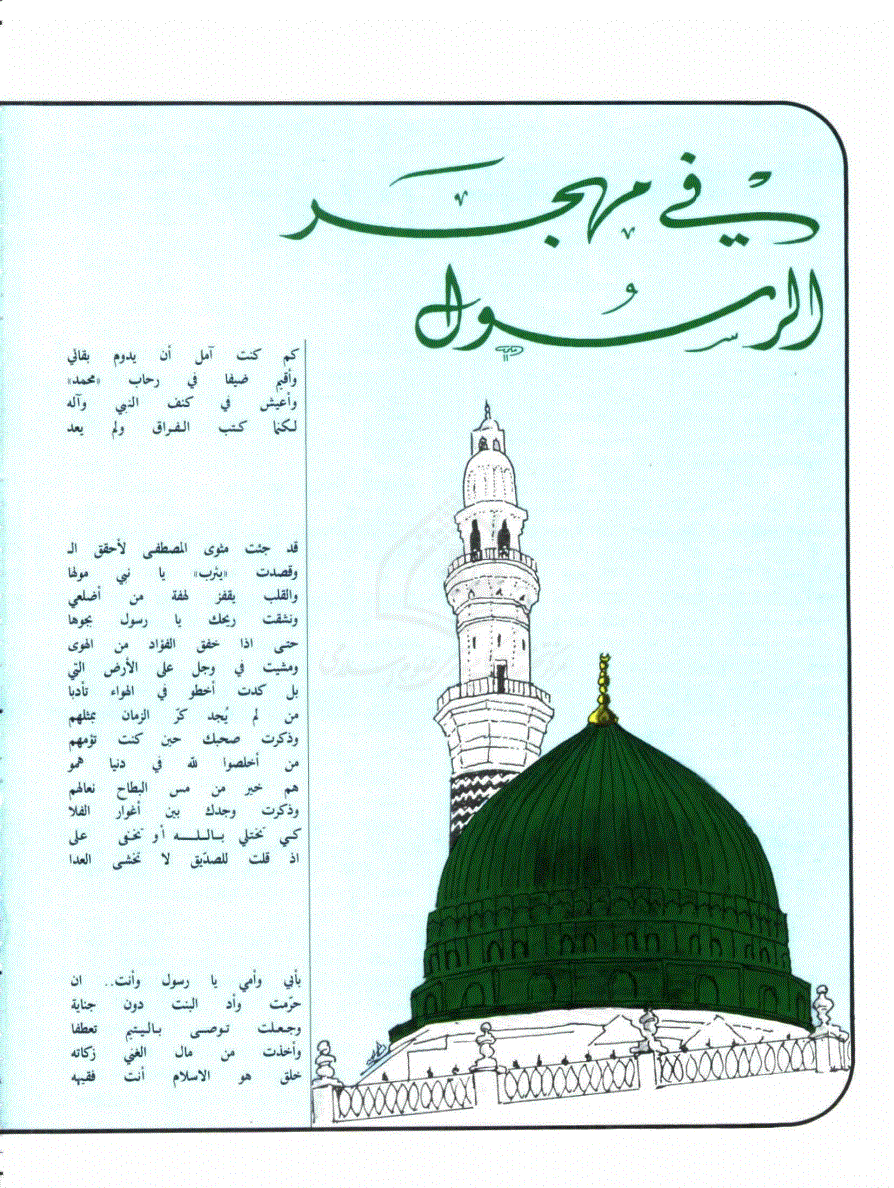 في مهجر
الرسول
كم كنت آمل أن يدوم بقائي
وأقيم ضيفا في رحاب «محمد»
وأعيش في كنف النبي وآله
لكنما كتب الفراق ولم يعد
قد جئت مثوى المصطفى لأحقق الـ
وقصدت «يثرب» يا نبي مولها
والقلب يقفز لهفة من أضلعي
ونشقت ريحك يا رسول بجوها
حتى اذا خفق الفؤاد من الهوى
ومشيت في وجل على الأرض التي
بل كدت أخطو في الهواء تأدبا
من لم يُجد كرّ الزمان بمثلهم
وذكرت صحبك حين كنت تؤمهم
من أخلصوا لله في دنيا همو
هم خير من مس البطاح نعالهم
وذكرت وجدك بين أغوار الفلا
كي تختلي بالله أو تخفى على
اذ قلت للصدّيق لا تخشى العدا
بأبي وأمي يا رسول وأنت.. ان
حرّمت وأد البنت دون جناية
وجعلت توصي باليتيم تعطفا
وأخذت من مال الغني زكاته
خلق هو الاسلام أنت فقيهه